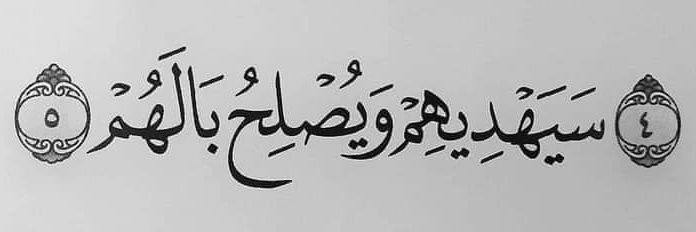 ٤ سَيَهْدِيهِمْ وَيُصْلِحُ بَالَهُمْ ٥